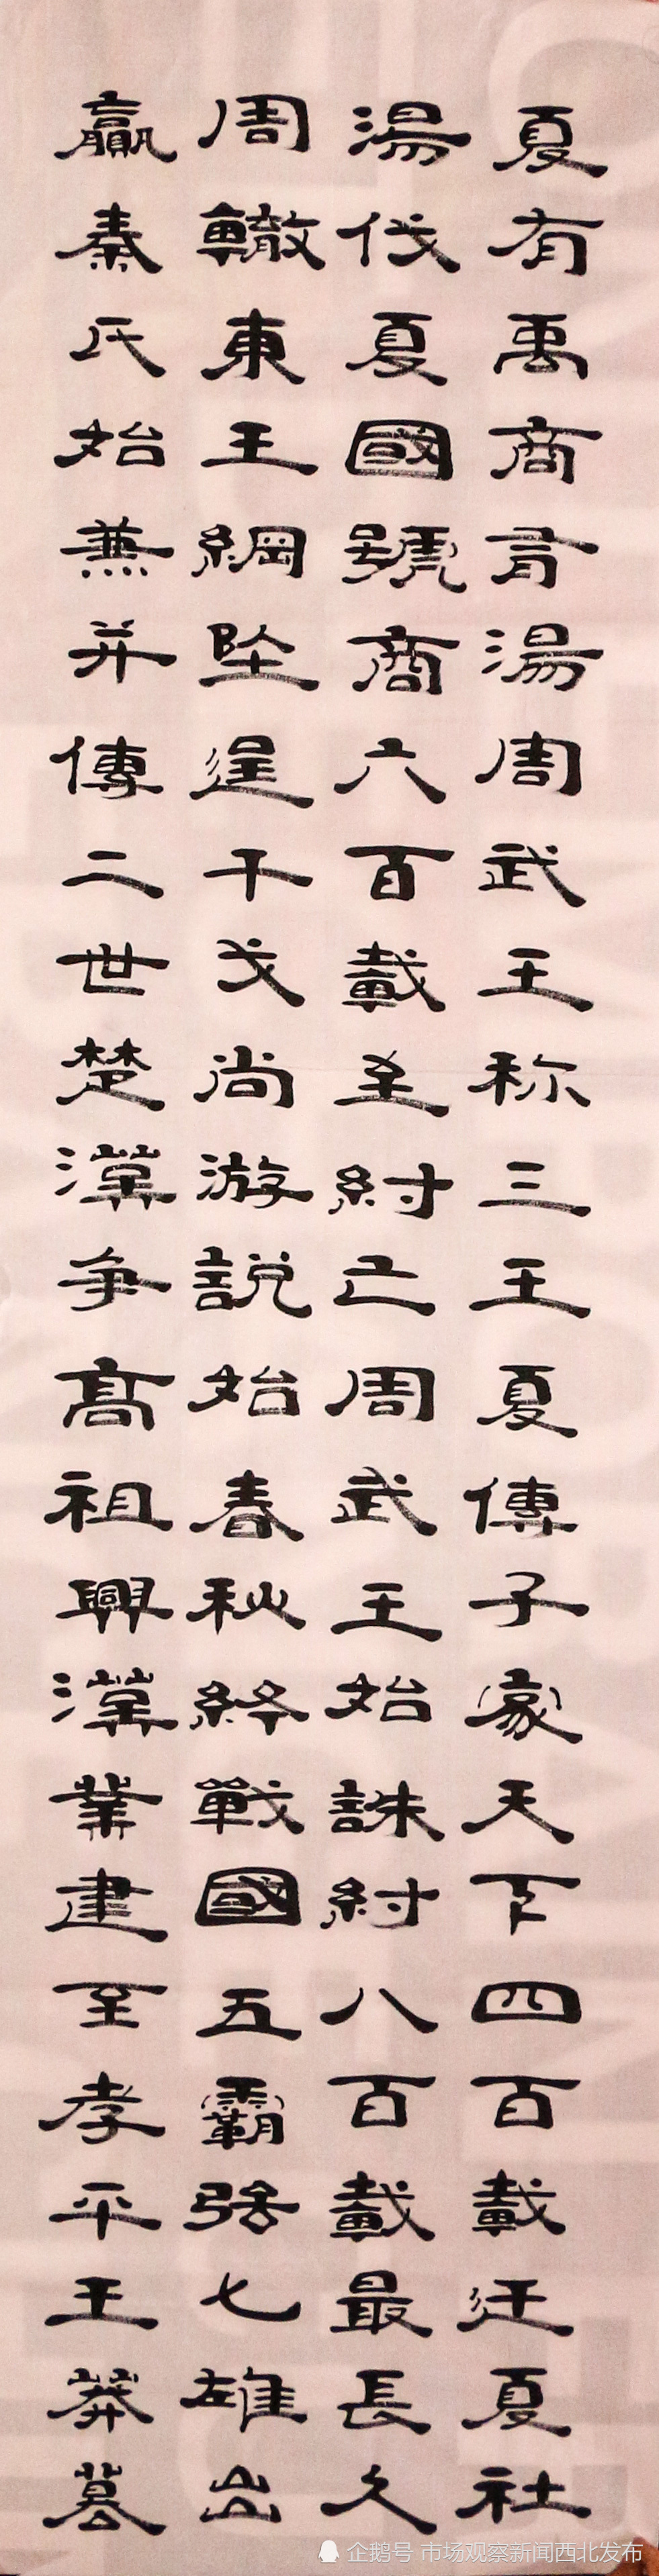 夏有禹商有湯周武王称三王夏傳子家天下四百載迁夏社
湯伐夏國號商六百載至紂亡周武王始誅紂八百載最長久
周轍東王綱坠逞干戈尚游説始春秋終戰國五霸强七雄出
贏秦氏始兼并傳二世楚漢争髙祖興漢業建至孝平王莽篡
企鹅号 市场观察新闻西北发布